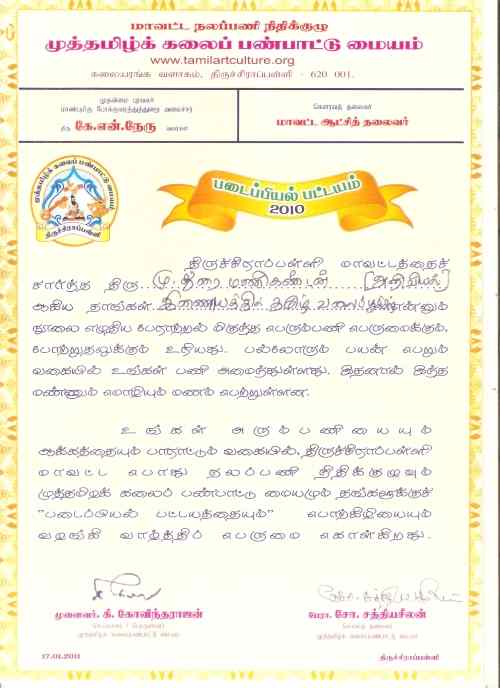 மாவட்ட நலப்பணி நிதிக்குழு
முத்தமிழ்க் கலைப் பண்பாட்டு மையம்
www.tamilartculture.org
கலையரங்க வளாகம், திருச்சிராப்பள்ளி - 620 001.
முதன்மை புரவலர்
மாண்புமிகு போக்குவரத்துத்துறை அமைச்சர்
திரு கே.என்.நேரு அவர்கள்
கௌரவத் தலைவர்
மாவட்ட ஆட்சித் தலைவர்
முத்தமிழ்க் கலைப் பண்பாட்டு மையம்
திருச்சிராப்பள்ளி
படைப்பியல் பட்டயம்
2010
திருச்சிராப்பள்ளி மாவட்டத்தைச்
சார்ந்த திரு. மு. திரை மணிகண்டன்
ஆகிய தாங்கள் இணையத்தில் தமிழ் என்னும்
நூலை எழுதிய பேராற்றல் மிகுந்த பெரும்பணி பெருமைக்கும்,
போற்றுதலுக்கும் உரியது. பல்லோரும் பயன் பெறும்
வகையில் உங்கள் பணி அமைந்துள்ளது. இதனால் இந்த
மண்ணும் மொழியும் மணம் பெற்றுள்ளன.
உங்கள் அரும்பணியையும்
ஆக்கத்தையும் பாராட்டும் வகையில், திருச்சிராப்பள்ளி
மாவட்ட பொது நலப்பணி நிதிக்குழுவும்
முத்தமிழ்க் கலைப் பண்பாட்டு மையமும் தங்களுக்குச்
"படைப்பியல் பட்டயத்தையும்" பொற்கிழியையும்
வழங்கி வாழ்த்திப் பெருமை கொள்கிறது.
முனைவர். கி. கோவிந்தராஜன்
செயலாளர் / பொருளாளர்
முத்தமிழ்க் கலைப்பண்பாட்டு மையம்
பேரா. சோ. சத்தியசீலன்
செயல் தலைவர்
முத்தமிழ்க் கலைப்பண்பாட்டு மையம்
17.01.2011
திருச்சிராப்பள்ளி